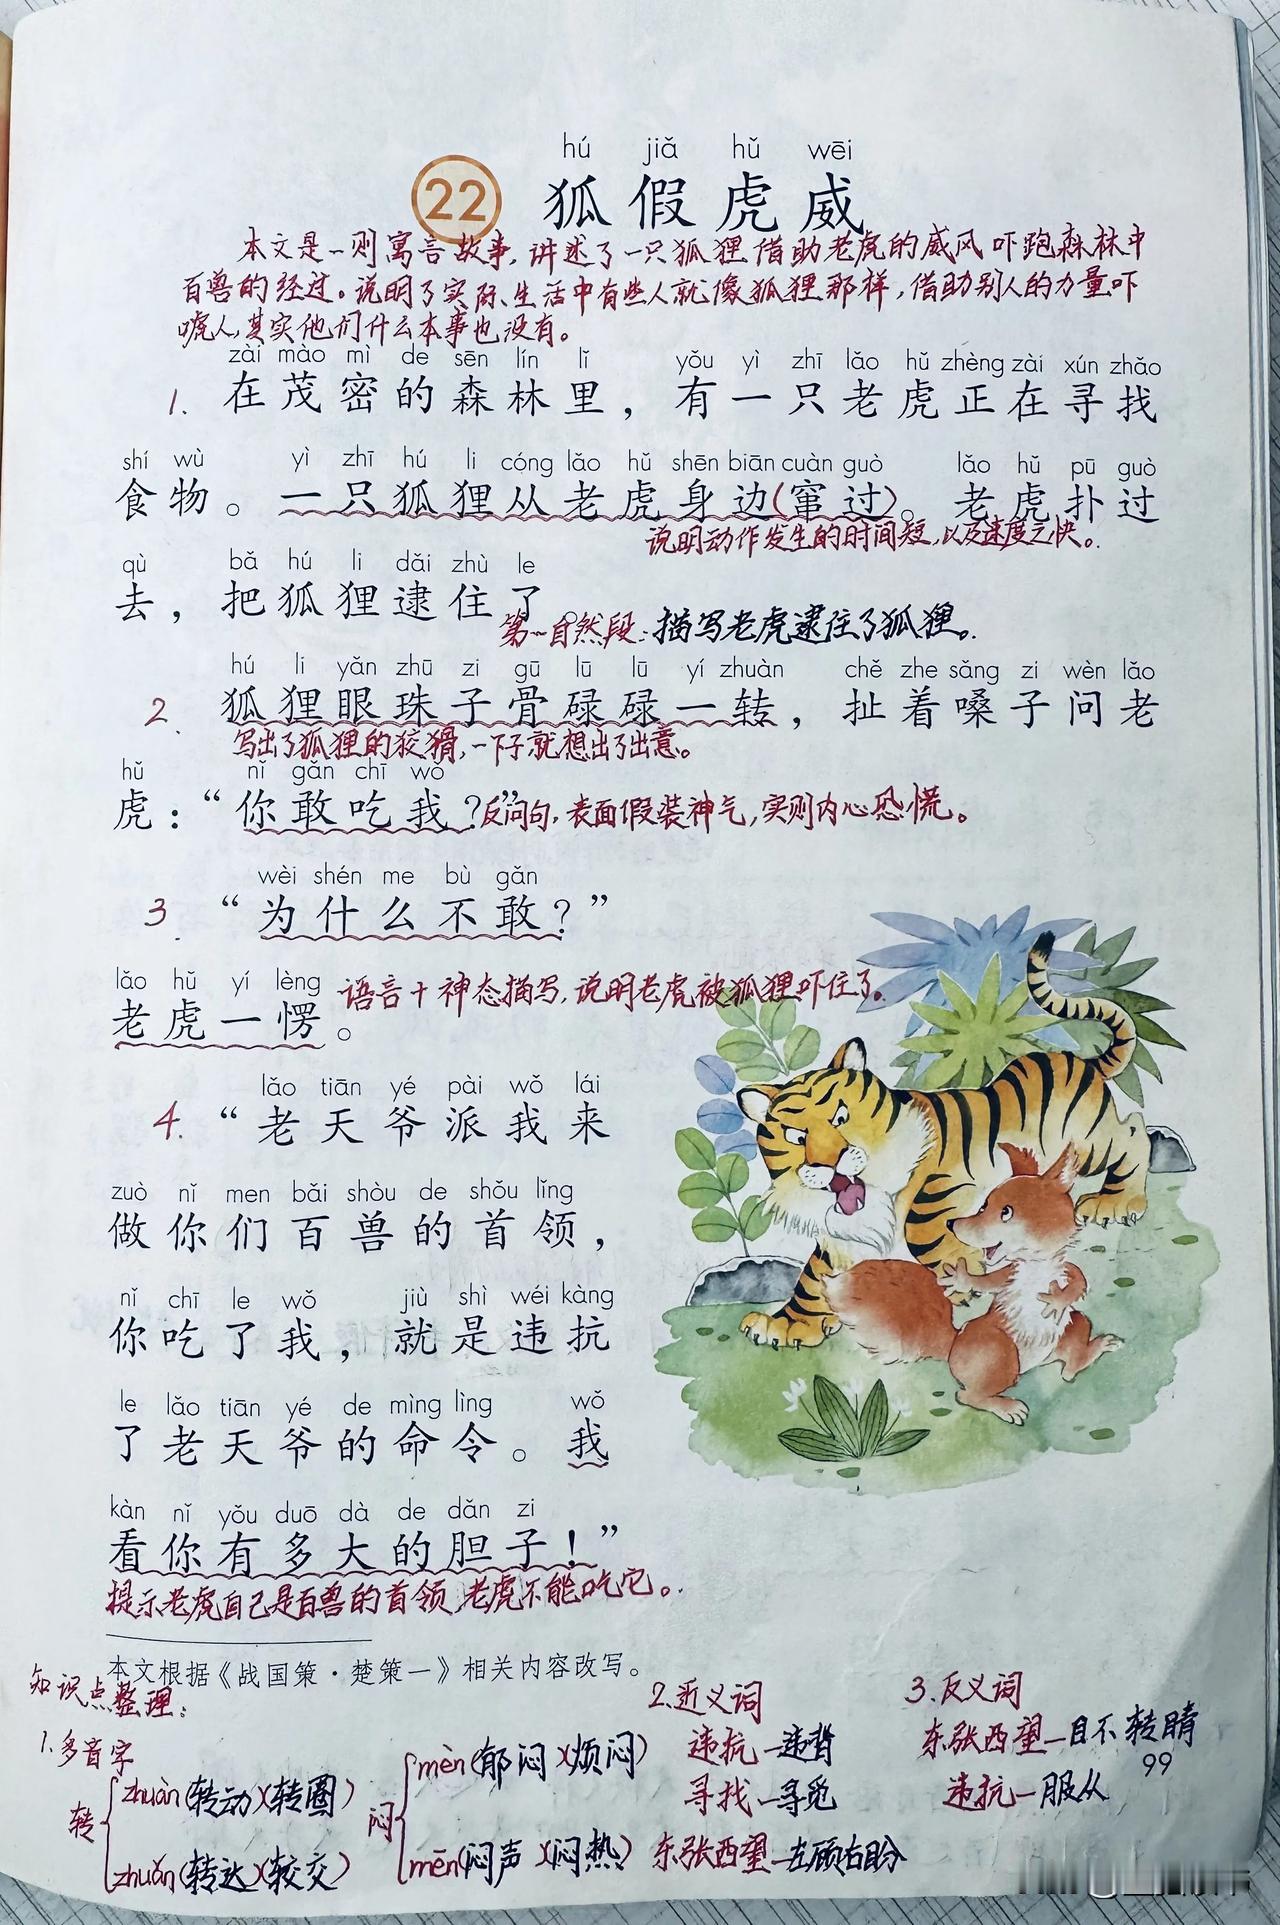 hú jiǎ hǔ wēi
22 狐假虎威
本文是一则寓言故事，讲述了一只狐狸借助老虎的威风吓跑森林中
百兽的经过。说明了实际生活中有些人就像狐狸那样，借助别人的力量吓
唬人，其实他们什么本事也没有。
zài mào mì de sēn lín lǐ yǒu yì zhī lǎo hǔ zhèng zài xún zhǎo
1. 在茂密的森林里，有一只老虎正在寻找
shí wù yì zhī hú li cóng lǎo hǔ shēn biān cuàn guò lǎo hǔ pū guò
食物。一只狐狸从老虎身边(窜过)。老虎扑过
说明动作发生的时间短，以及速度之快。
qù bǎ hú li dǎi zhù le
去，把狐狸逮住了。
第一自然段：描写老虎逮住了狐狸。
hú li yǎn zhū zi gū lū lū yí zhuàn chě zhe sǎng zi wèn lǎo
2. 狐狸眼珠子骨碌碌一转，扯着嗓子问老
写出了狐狸的狡猾，一下子就想出了出意。
hǔ nǐ gǎn chī wǒ
虎：“你敢吃我？”反问句，表面假装神气，实则内心恐慌。
wèi shén me bù gǎn
3. “为什么不敢？”
lǎo hǔ yí lèng 语言+神态描写，说明老虎被狐狸吓住了。
老虎一愣。
lǎo tiān yé pài wǒ lái
4. “老天爷派我来
zuò nǐ men bǎi shòu de shǒu lǐng
做你们百兽的首领，
nǐ chī le wǒ jiù shì wéi kàng
你吃了我，就是违抗
le lǎo tiān yé de mìng lìng wǒ
了老天爷的命令。我
kàn nǐ yǒu duō dà de dǎn zi
看你有多大的胆子！”
提示老虎自己是百兽的首领，老虎不能吃它。
本文根据《战国策·楚策一》相关内容改写。
知识点整理：
1. 多音字
转 zhuàn(转动)(转圈)
zhuǎn(转达)(较交)
闷 mèn(郁闷)(烦闷)
mēn(闷声)(闷热)
2. 近义词
违抗—违背
寻找—寻觅
东张西望—左顾右盼
3. 反义词
东张西望—目不转睛
违抗—服从
99